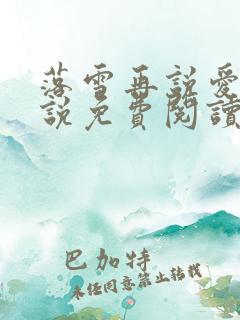 落雪再說愛
說免費閱讀
巴加特
未任同意禁止转载